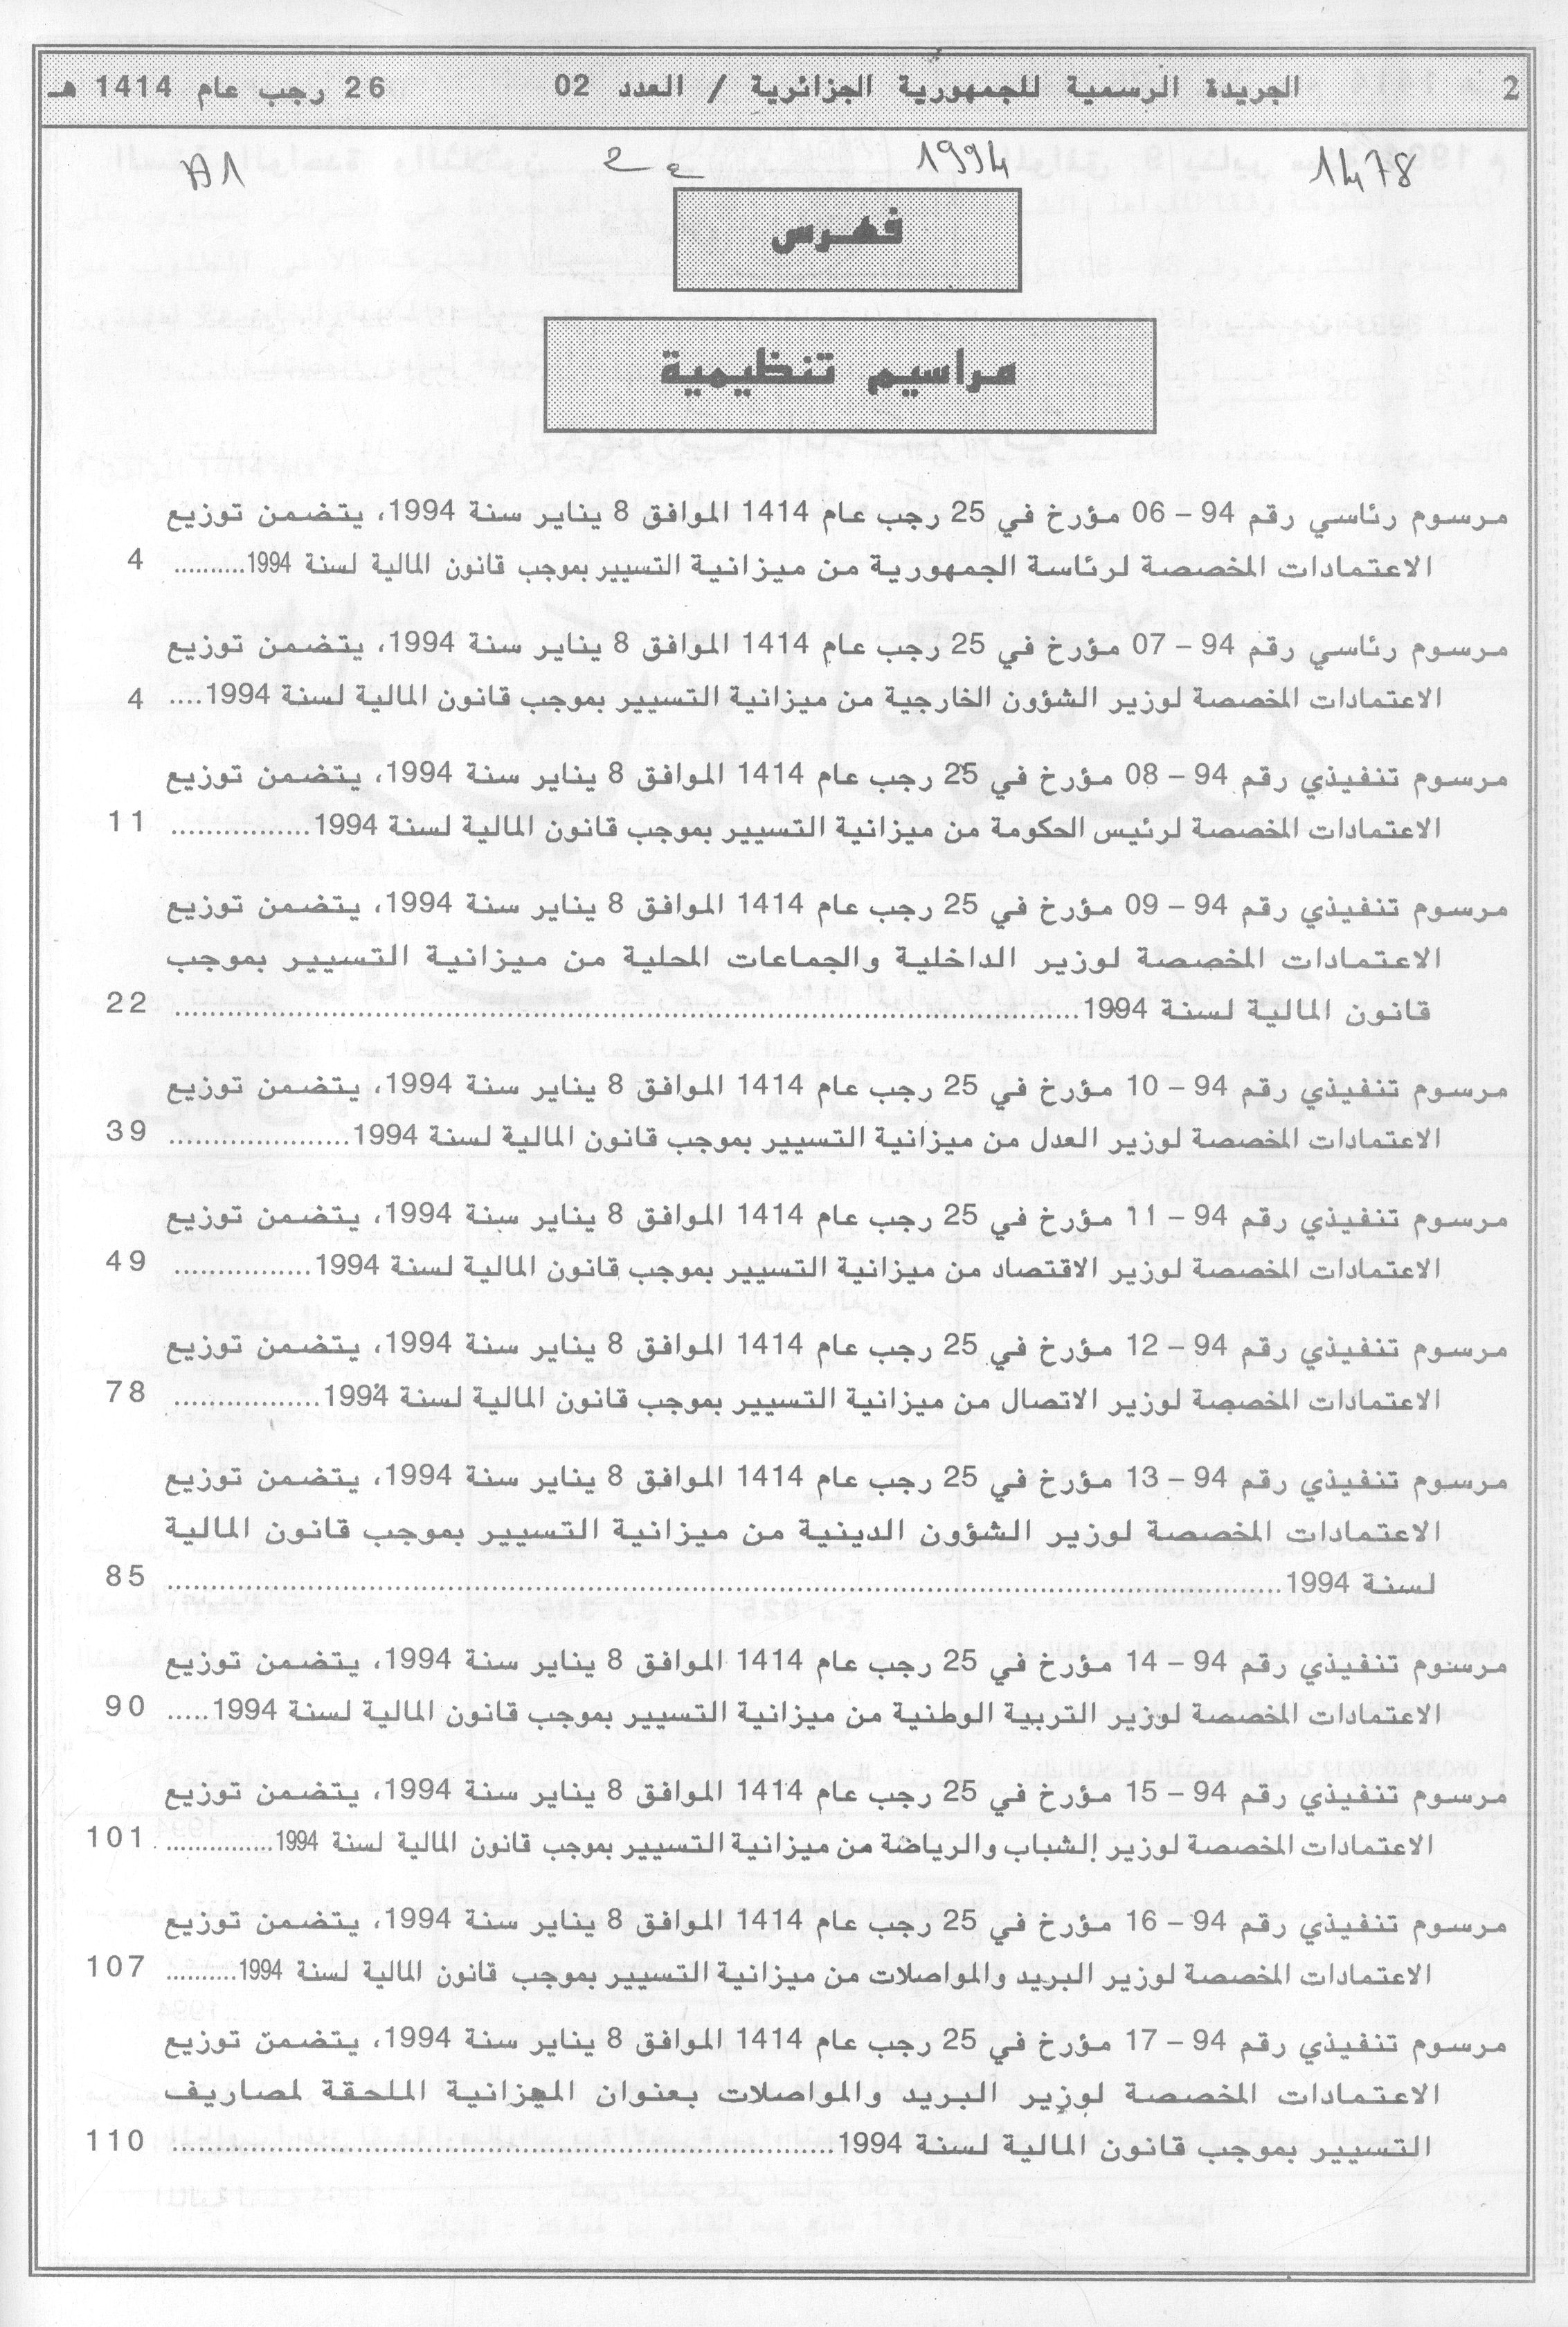 2 الجريدة الرسمية للجمهورية الجزائرية / العدد 02 26 رجب عام 1414 هـ
1478 1994 A1
فهرس
مراسيم تنظيمية
مرسوم رئاسي رقم 94 – 06 مؤرخ في 25 رجب عام 1414 الموافق 8 يناير سنة 1994، يتضمن توزيع
الاعتمادات المخصصة لرئاسة الجمهورية من ميزانية التسيير بموجب قانون المالية لسنة 1994.......... 4
مرسوم رئاسي رقم 94 – 07 مؤرخ في 25 رجب عام 1414 الموافق 8 يناير سنة 1994، يتضمن توزيع
الاعتمادات المخصصة لوزير الشؤون الخارجية من ميزانية التسيير بموجب قانون المالية لسنة 1994.... 4
مرسوم تنفيذي رقم 94 – 08 مؤرخ في 25 رجب عام 1414 الموافق 8 يناير سنة 1994، يتضمن توزيع
الاعتمادات المخصصة لرئيس الحكومة من ميزانية التسيير بموجب قانون المالية لسنة 1994................ 11
مرسوم تنفيذي رقم 94 – 09 مؤرخ في 25 رجب عام 1414 الموافق 8 يناير سنة 1994، يتضمن توزيع
الاعتمادات المخصصة لوزير الداخلية والجماعات المحلية من ميزانية التسيير بموجب
قانون المالية لسنة 1994................................................................ 22
مرسوم تنفيذي رقم 94 – 10 مؤرخ في 25 رجب عام 1414 الموافق 8 يناير سنة 1994، يتضمن توزيع
الاعتمادات المخصصة لوزير العدل من ميزانية التسيير بموجب قانون المالية لسنة 1994..................... 39
مرسوم تنفيذي رقم 94 – 11 مؤرخ في 25 رجب عام 1414 الموافق 8 يناير سنة 1994، يتضمن توزيع
الاعتمادات المخصصة لوزير الاقتصاد من ميزانية التسيير بموجب قانون المالية لسنة 1994................ 49
مرسوم تنفيذي رقم 94 – 12 مؤرخ في 25 رجب عام 1414 الموافق 8 يناير سنة 1994، يتضمن توزيع
الاعتمادات المخصصة لوزير الاتصال من ميزانية التسيير بموجب قانون المالية لسنة 1994................. 78
مرسوم تنفيذي رقم 94 – 13 مؤرخ في 25 رجب عام 1414 الموافق 8 يناير سنة 1994، يتضمن توزيع
الاعتمادات المخصصة لوزير الشؤون الدينية من ميزانية التسيير بموجب قانون المالية
لسنة 1994................................................................ 85
مرسوم تنفيذي رقم 94 – 14 مؤرخ في 25 رجب عام 1414 الموافق 8 يناير سنة 1994، يتضمن توزيع
الاعتمادات المخصصة لوزير التربية الوطنية من ميزانية التسيير بموجب قانون المالية لسنة 1994..... 90
مرسوم تنفيذي رقم 94 – 15 مؤرخ في 25 رجب عام 1414 الموافق 8 يناير سنة 1994، يتضمن توزيع
الاعتمادات المخصصة لوزير الشباب والرياضة من ميزانية التسيير بموجب قانون المالية لسنة 1994............... 101
مرسوم تنفيذي رقم 94 – 16 مؤرخ في 25 رجب عام 1414 الموافق 8 يناير سنة 1994، يتضمن توزيع
الاعتمادات المخصصة لوزير البريد والمواصلات من ميزانية التسيير بموجب قانون المالية لسنة 1994.......... 107
مرسوم تنفيذي رقم 94 – 17 مؤرخ في 25 رجب عام 1414 الموافق 8 يناير سنة 1994، يتضمن توزيع
الاعتمادات المخصصة لوزير البريد والمواصلات بعنوان الميزانية الملحقة لمصاريف
التسيير بموجب قانون المالية لسنة 1994................................................................ 110